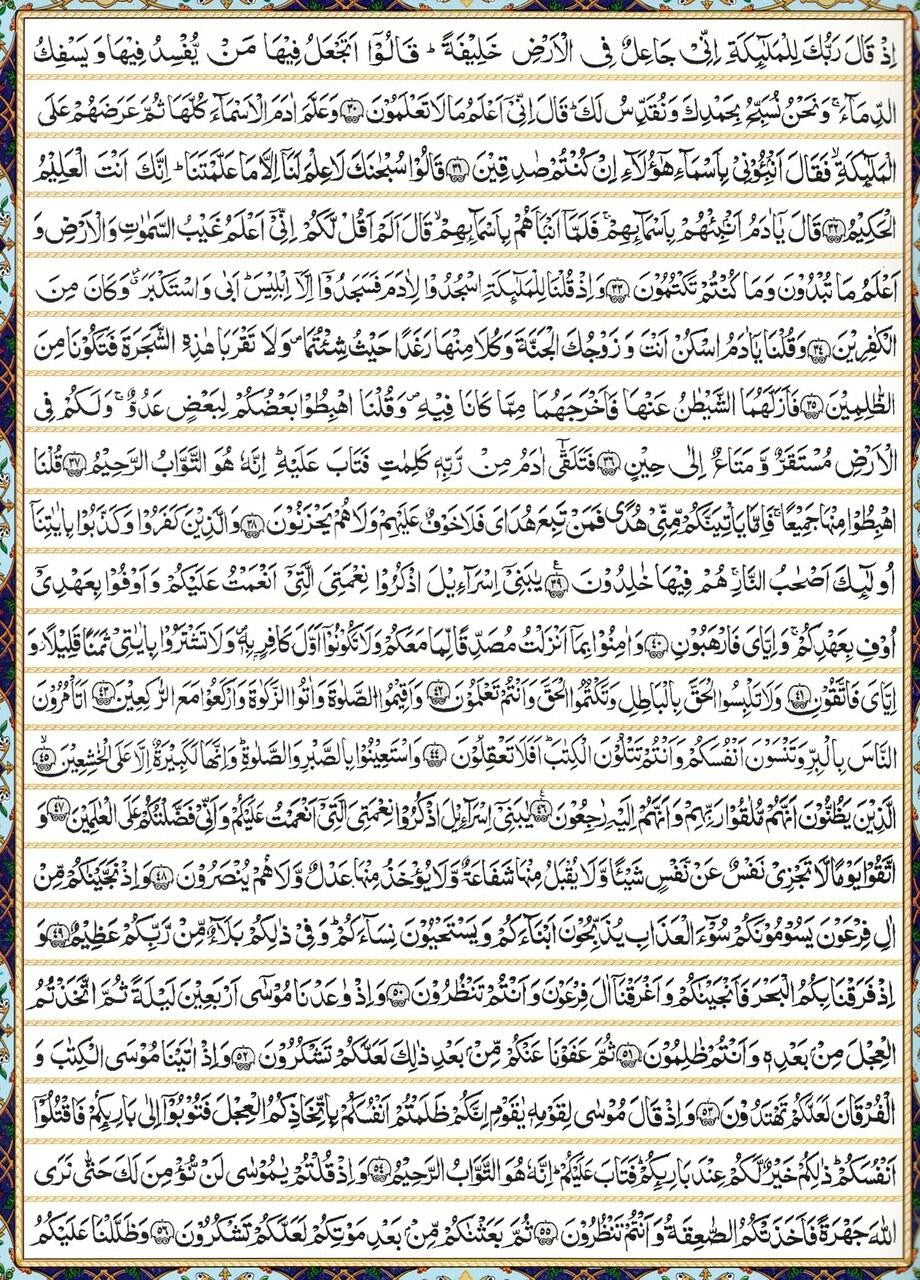 اِذْ قَالَ رَبُّكَ لِلْمَلٰٓئِكَةِ اِنِّیْ جَاعِلٌ فِی الْاَرْضِ خَلِیْفَةً ؕ قَالُوْۤا اَتَجْعَلُ فِیْهَا مَنْ یُّفْسِدُ فِیْهَا وَ یَسْفِكُ
الدِّمَآءَ ۚ وَ نَحْنُ نُسَبِّحُ بِحَمْدِكَ وَ نُقَدِّسُ لَكَ ؕ قَالَ اِنِّیْۤ اَعْلَمُ مَا لَا تَعْلَمُوْنَ ﴿۳۰﴾ وَ عَلَّمَ اٰدَمَ الْاَسْمَآءَ كُلَّهَا ثُمَّ عَرَضَهُمْ عَلَی
الْمَلٰٓئِكَةِ ۙ فَقَالَ اَنْۢبِـُٔوْنِیْ بِاَسْمَآءِ هٰۤؤُلَآءِ اِنْ كُنْتُمْ صٰدِقِیْنَ ﴿۳۱﴾ قَالُوْا سُبْحٰنَكَ لَا عِلْمَ لَنَاۤ اِلَّا مَا عَلَّمْتَنَا ؕ اِنَّكَ اَنْتَ الْعَلِیْمُ
الْحَكِیْمُ ﴿۳۲﴾ قَالَ یٰۤاٰدَمُ اَنْۢبِئْهُمْ بِاَسْمَآىِٕهِمْ ۚ فَلَمَّاۤ اَنْۢبَاَهُمْ بِاَسْمَآىِٕهِمْ ۙ قَالَ اَلَمْ اَقُلْ لَّكُمْ اِنِّیْۤ اَعْلَمُ غَیْبَ السَّمٰوٰتِ وَ الْاَرْضِ ۙ وَ
اَعْلَمُ مَا تُبْدُوْنَ وَ مَا كُنْتُمْ تَكْتُمُوْنَ ﴿۳۳﴾ وَ اِذْ قُلْنَا لِلْمَلٰٓئِكَةِ اسْجُدُوْا لِاٰدَمَ فَسَجَدُوْۤا اِلَّاۤ اِبْلِیْسَ ؕ اَبٰی وَ اسْتَكْبَرَ ٘ۗ وَ كَانَ مِنَ
الْكٰفِرِیْنَ ﴿۳۴﴾ وَ قُلْنَا یٰۤاٰدَمُ اسْكُنْ اَنْتَ وَ زَوْجُكَ الْجَنَّةَ وَ كُلَا مِنْهَا رَغَدًا حَیْثُ شِئْتُمَا ۪ وَ لَا تَقْرَبَا هٰذِهِ الشَّجَرَةَ فَتَكُوْنَا مِنَ
الظّٰلِمِیْنَ ﴿۳۵﴾ فَاَزَلَّهُمَا الشَّیْطٰنُ عَنْهَا فَاَخْرَجَهُمَا مِمَّا كَانَا فِیْهِ ۪ وَ قُلْنَا اهْبِطُوْا بَعْضُكُمْ لِبَعْضٍ عَدُوٌّ ۚ وَ لَكُمْ فِی
الْاَرْضِ مُسْتَقَرٌّ وَّ مَتَاعٌ اِلٰی حِیْنٍ ﴿۳۶﴾ فَتَلَقّٰۤی اٰدَمُ مِنْ رَّبِّهٖ كَلِمٰتٍ فَتَابَ عَلَیْهِ ؕ اِنَّهٗ هُوَ التَّوَّابُ الرَّحِیْمُ ﴿۳۷﴾ قُلْنَا
اهْبِطُوْا مِنْهَا جَمِیْعًا ۚ فَاِمَّا یَاْتِیَنَّكُمْ مِّنِّیْ هُدًی فَمَنْ تَبِعَ هُدَایَ فَلَا خَوْفٌ عَلَیْهِمْ وَ لَا هُمْ یَحْزَنُوْنَ ﴿۳۸﴾ وَ الَّذِیْنَ كَفَرُوْا وَ كَذَّبُوْا بِاٰیٰتِنَاۤ
اُولٰٓىِٕكَ اَصْحٰبُ النَّارِ ۚ هُمْ فِیْهَا خٰلِدُوْنَ ﴿۳۹﴾ یٰبَنِیْۤ اِسْرَآءِیْلَ اذْكُرُوْا نِعْمَتِیَ الَّتِیْۤ اَنْعَمْتُ عَلَیْكُمْ وَ اَوْفُوْا بِعَهْدِیْۤ
اُوْفِ بِعَهْدِكُمْ ۚ وَ اِیَّایَ فَارْهَبُوْنِ ﴿۴۰﴾ وَ اٰمِنُوْا بِمَاۤ اَنْزَلْتُ مُصَدِّقًا لِّمَا مَعَكُمْ وَ لَا تَكُوْنُوْۤا اَوَّلَ كَافِرٍۭ بِهٖ ۪ وَ لَا تَشْتَرُوْا بِاٰیٰتِیْ ثَمَنًا قَلِیْلًا ؗ وَّ
اِیَّایَ فَاتَّقُوْنِ ﴿۴۱﴾ وَ لَا تَلْبِسُوا الْحَقَّ بِالْبَاطِلِ وَ تَكْتُمُوا الْحَقَّ وَ اَنْتُمْ تَعْلَمُوْنَ ﴿۴۲﴾ وَ اَقِیْمُوا الصَّلٰوةَ وَ اٰتُوا الزَّكٰوةَ وَ ارْكَعُوْا مَعَ الرّٰكِعِیْنَ ﴿۴۳﴾ اَتَاْمُرُوْنَ
النَّاسَ بِالْبِرِّ وَ تَنْسَوْنَ اَنْفُسَكُمْ وَ اَنْتُمْ تَتْلُوْنَ الْكِتٰبَ ؕ اَفَلَا تَعْقِلُوْنَ ﴿۴۴﴾ وَ اسْتَعِیْنُوْا بِالصَّبْرِ وَ الصَّلٰوةِ ؕ وَ اِنَّهَا لَكَبِیْرَةٌ اِلَّا عَلَی الْخٰشِعِیْنَ ﴿۴۵﴾
الَّذِیْنَ یَظُنُّوْنَ اَنَّهُمْ مُّلٰقُوْا رَبِّهِمْ وَ اَنَّهُمْ اِلَیْهِ رٰجِعُوْنَ ﴿۴۶﴾ یٰبَنِیْۤ اِسْرَآءِیْلَ اذْكُرُوْا نِعْمَتِیَ الَّتِیْۤ اَنْعَمْتُ عَلَیْكُمْ وَ اَنِّیْ فَضَّلْتُكُمْ عَلَی الْعٰلَمِیْنَ ﴿۴۷﴾ وَ
اتَّقُوْا یَوْمًا لَّا تَجْزِیْ نَفْسٌ عَنْ نَّفْسٍ شَیْـًٔا وَّ لَا یُقْبَلُ مِنْهَا شَفَاعَةٌ وَّ لَا یُؤْخَذُ مِنْهَا عَدْلٌ وَّ لَا هُمْ یُنْصَرُوْنَ ﴿۴۸﴾ وَ اِذْ نَجَّیْنٰكُمْ مِّنْ
اٰلِ فِرْعَوْنَ یَسُوْمُوْنَكُمْ سُوْٓءَ الْعَذَابِ یُذَبِّحُوْنَ اَبْنَآءَكُمْ وَ یَسْتَحْیُوْنَ نِسَآءَكُمْ ؕ وَ فِیْ ذٰلِكُمْ بَلَآءٌ مِّنْ رَّبِّكُمْ عَظِیْمٌ ﴿۴۹﴾ وَ
اِذْ فَرَقْنَا بِكُمُ الْبَحْرَ فَاَنْجَیْنٰكُمْ وَ اَغْرَقْنَاۤ اٰلَ فِرْعَوْنَ وَ اَنْتُمْ تَنْظُرُوْنَ ﴿۵۰﴾ وَ اِذْ وٰعَدْنَا مُوْسٰۤی اَرْبَعِیْنَ لَیْلَةً ثُمَّ اتَّخَذْتُمُ
الْعِجْلَ مِنْۢ بَعْدِهٖ وَ اَنْتُمْ ظٰلِمُوْنَ ﴿۵۱﴾ ثُمَّ عَفَوْنَا عَنْكُمْ مِّنْۢ بَعْدِ ذٰلِكَ لَعَلَّكُمْ تَشْكُرُوْنَ ﴿۵۲﴾ وَ اِذْ اٰتَیْنَا مُوْسَی الْكِتٰبَ وَ
الْفُرْقَانَ لَعَلَّكُمْ تَهْتَدُوْنَ ﴿۵۳﴾ وَ اِذْ قَالَ مُوْسٰی لِقَوْمِهٖ یٰقَوْمِ اِنَّكُمْ ظَلَمْتُمْ اَنْفُسَكُمْ بِاتِّخَاذِكُمُ الْعِجْلَ فَتُوْبُوْۤا اِلٰی بَارِىِٕكُمْ فَاقْتُلُوْۤا
اَنْفُسَكُمْ ؕ ذٰلِكُمْ خَیْرٌ لَّكُمْ عِنْدَ بَارِىِٕكُمْ ؕ فَتَابَ عَلَیْكُمْ ؕ اِنَّهٗ هُوَ التَّوَّابُ الرَّحِیْمُ ﴿۵۴﴾ وَ اِذْ قُلْتُمْ یٰمُوْسٰی لَنْ نُّؤْمِنَ لَكَ حَتّٰی نَرَی
اللّٰهَ جَهْرَةً فَاَخَذَتْكُمُ الصّٰعِقَةُ وَ اَنْتُمْ تَنْظُرُوْنَ ﴿۵۵﴾ ثُمَّ بَعَثْنٰكُمْ مِّنْۢ بَعْدِ مَوْتِكُمْ لَعَلَّكُمْ تَشْكُرُوْنَ ﴿۵۶﴾ وَ ظَلَّلْنَا عَلَیْكُمُ